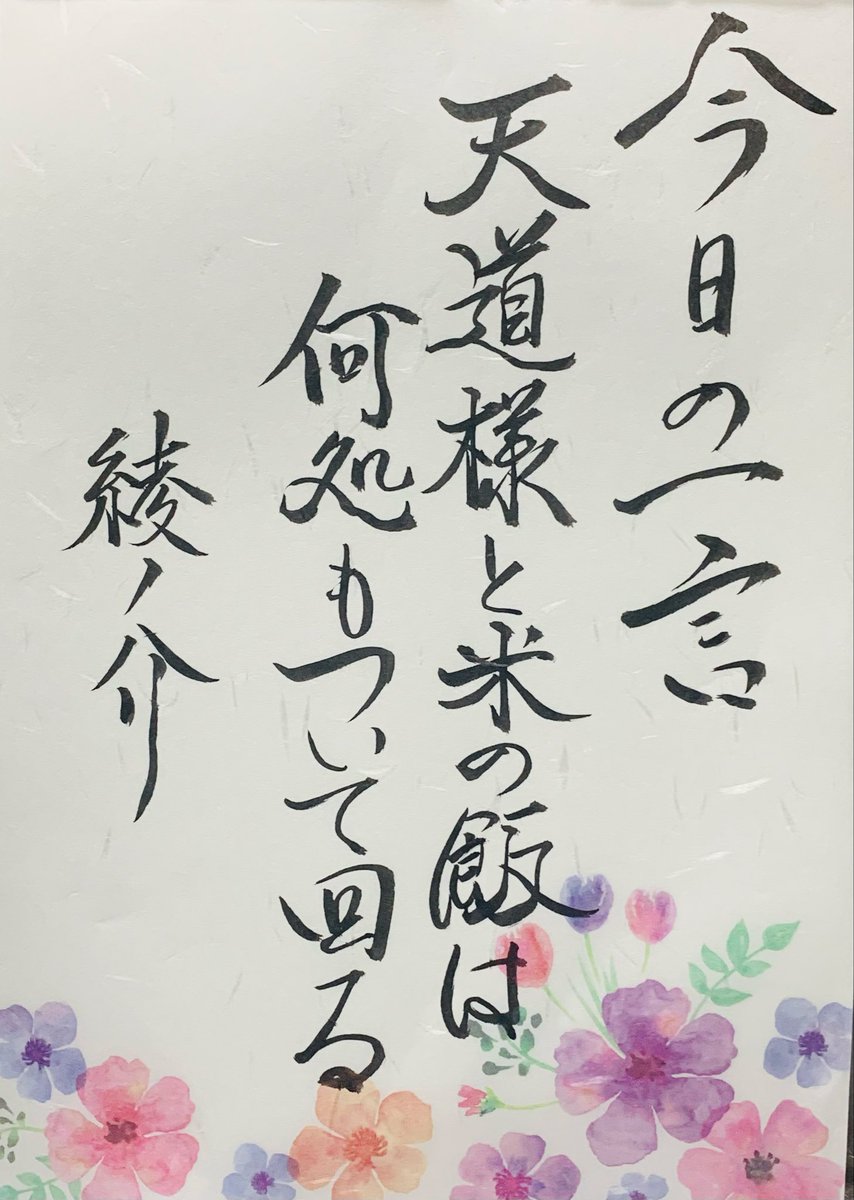 今日の一言
天道様と米の飯は
何処もついて回る
綾ノ介